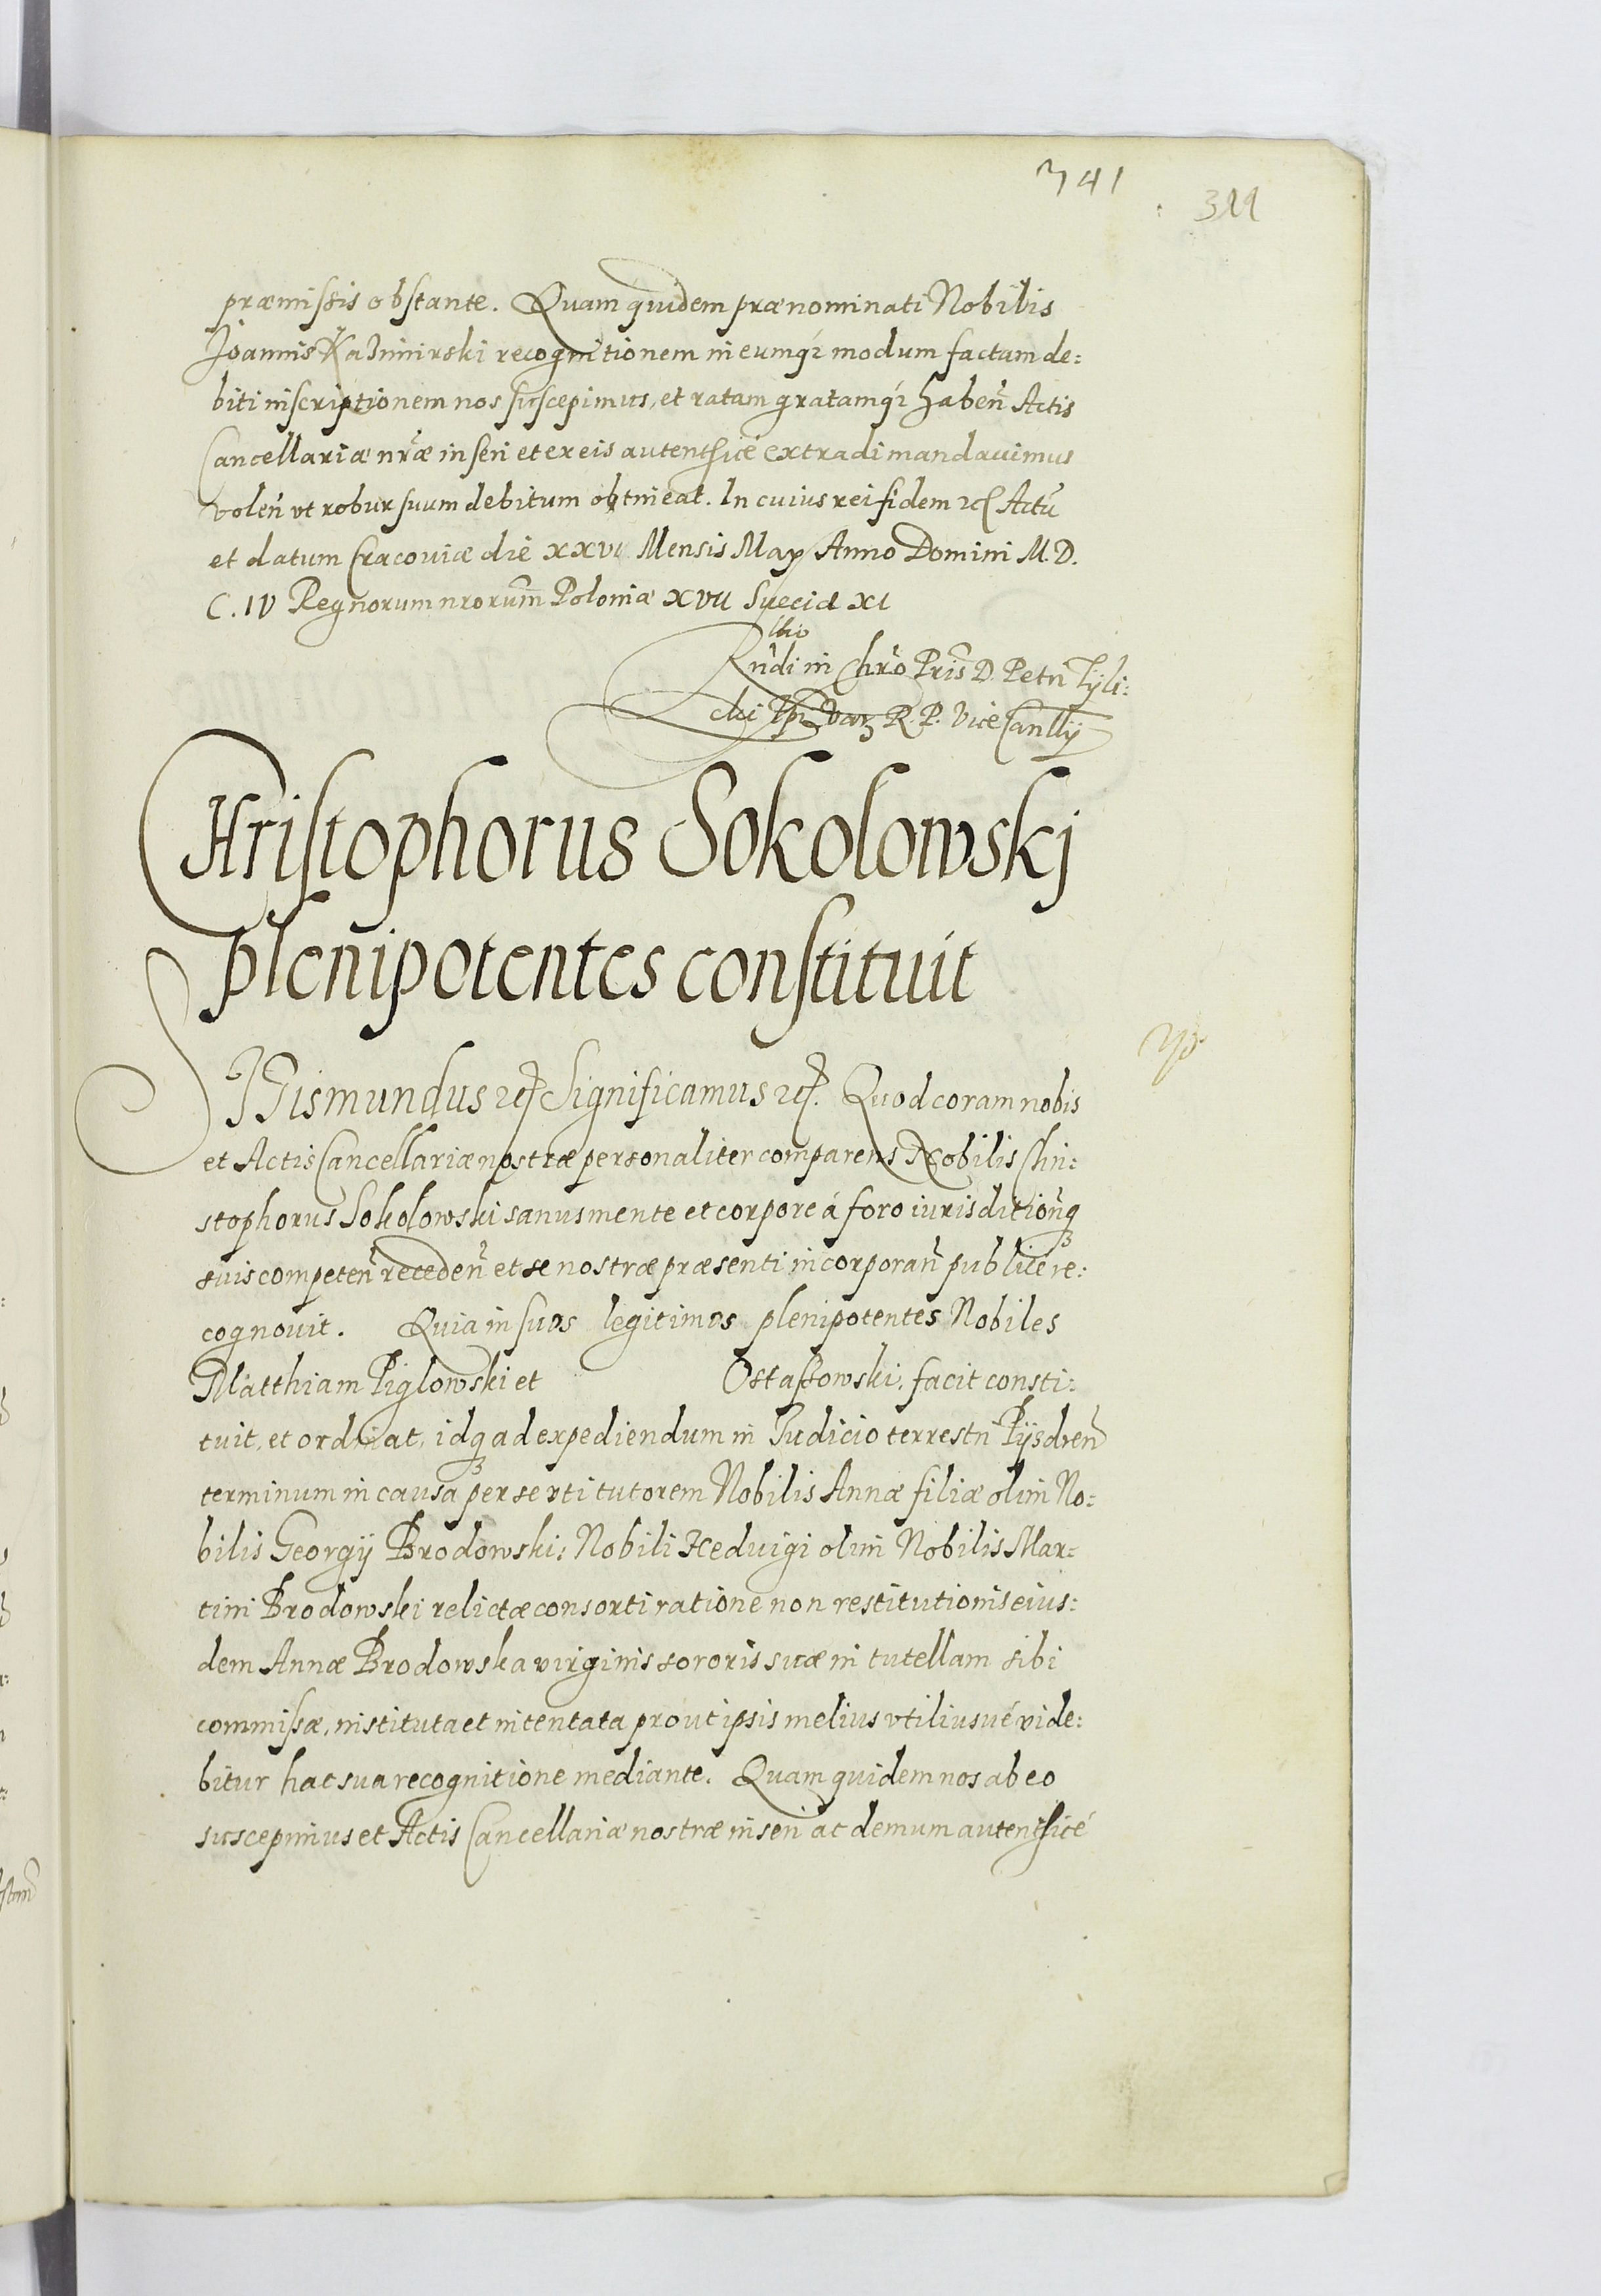 341
311
præmissis obstante. Quam quidem prænominati Nobilis
Joannis Kazimirski recognitionem in eumq́3 modum factam de:
biti inscriptionem nos suscepimus, et ratam gratamq́3 haben̄ Actis
Cancellariæ nr̄æ inseri et ex eis autenthicè extradi mandavimus
volen̄ vt robur suum debitum obtineat. In cuius rei fidem etc Actū
et datum Cracoviæ die XXVI Mensis Maÿ Anno Domini M.D.
C.IV Regnorum nrorum̄ Poloniæ XVII Sueciæ XI
Rn̄di in Chrō Pris̄ D. Petri Tyli:
cki Epi R.P. Vice Canllÿ
CHristophorus Sokolowskj
plenipotentes constituit
SIGismundus etc Significamus etc. Quod coram nobis
et Actis Cancellariæ nostræ personaliter comparens Nobilis Chri:
stophorus Sokolowski sanus mente et corpore á foro iurisdition̄q3
suis competen̄ receden̄ et se nostræ præsenti incorporan̄ publicè re:
cognouit. Quia in suos legitimos plenipotentes Nobiles
Matthiam Piglowski et Ostaßowski, facit consti:
tuit, et ordinat, idq3 ad expediendum in Judicio terrestri Pÿsdren̄
terminum in causa per se vti tutorem Nobilis Annæ filiæ olim No:
bilis Georgÿ Brodowski; Nobili Hedvigi olim Nobilis Mar:
tini Brodowski relictæ consorti ratione non restitutionis eius:
dem Annæ Brodowska virginis sororis suæ in tutellam sibi
commissæ, instituta et intentata prout ipsis melius vtiliusué vide:
bitur hac sua recognitione mediante. Quam quidem nos ab eo
suscepimus et Actis Cancellariæ nostræ inseri ac demum autenthicé